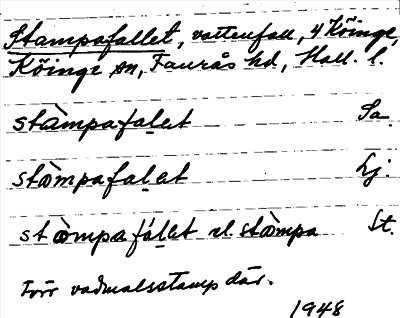 Stampafallet, vattenfall, 4 Köinge,
Köinge sn, Faurås hd, Hall. l.
stàmpafalet Sa.
stòmpafalet Lj.
stòmpafalet el. stòmpa St.
Förr vadmalsstamp där.
1948